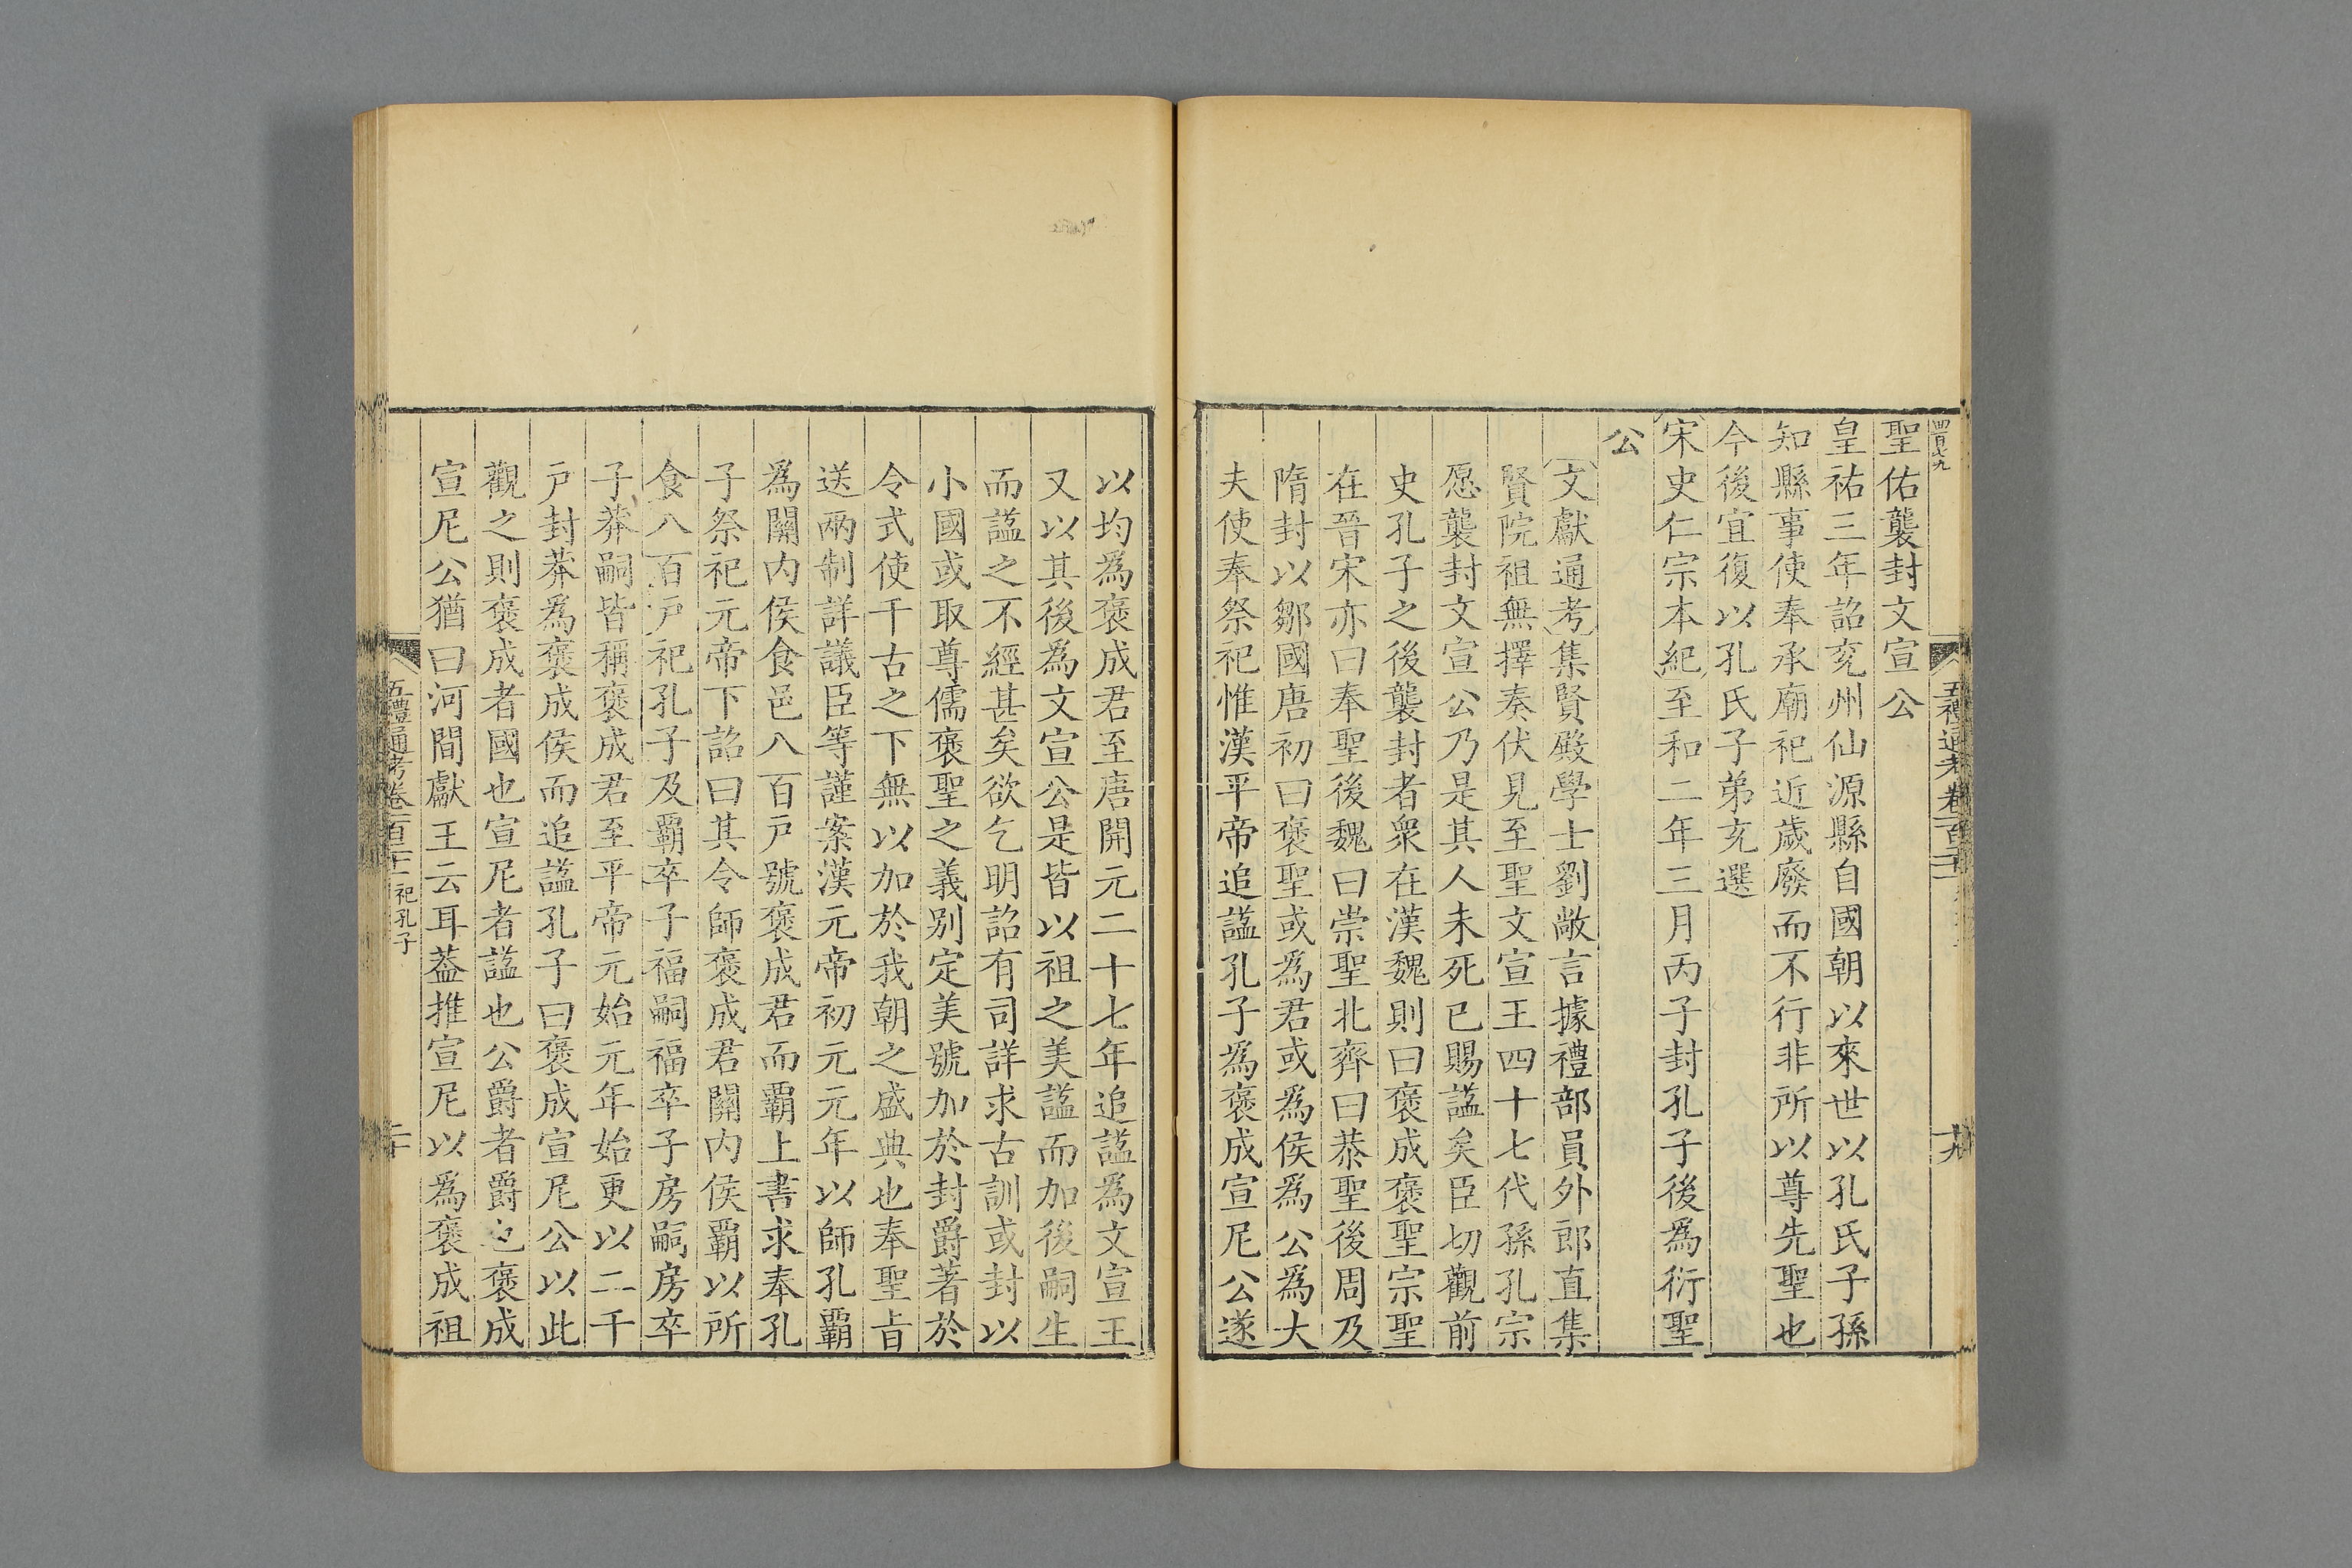 四百七九
聖佑襲封文宣公
皇祐三年詔兖州仙源縣自國朝以來世以孔氏子孫
知縣事使奉承廟祀近歲廢而不行非所以尊先聖也
今後宜復以孔氏子弟充選
宋史仁宗本紀至和二年三月丙子封孔子後爲衍聖
公
文獻通考集賢殿學士劉敞言據禮部員外郎直集
賢院祖無擇奏伏見至聖文宣王四十七代孫孔宗
愿襲封文宣公乃是其人未死已賜諡矣臣切觀前
史孔子之後襲封者衆在漢魏則曰褒成褒聖宗聖
在晉宋亦曰奉聖後魏曰崇聖北齊曰恭聖後周及
隋封以鄒國唐初曰褒聖或爲君或爲侯爲公爲大
夫使奉祭祀惟漢平帝追諡孔子爲褒成宣尼公遂
以均爲褒成君至唐開元二十七年追諡爲文宣王
又以其後爲文宣公是皆以祖之美諡而加後嗣生
而諡之不經甚矣欲乞明詔有司詳求古訓或封以
小國或取尊儒褒聖之義别定美號加於封爵著於
令式使千古之下無以加於我朝之盛典也奉聖㫖
送兩制詳議臣等謹案漢元帝初元元年以師孔霸
爲關内侯食邑八百戸號褒成君而霸上書求奉孔
子祭祀元帝下詔曰其令師褒成君關内侯霸以所
食八百戸祀孔子及霸卒子福嗣福卒子房嗣房卒
子莽嗣皆稱褒成君至平帝元始元年始更以二千
戸封莽爲褒成侯而追諡孔子曰褒成宣尼公以此
觀之則褒成者國也宣尼者諡也公爵者爵也褒成
宣尼公猶曰河間獻王云耳葢推宣尼以爲褒成祖
五禮通考卷一百十 祀孔子
二十
十九